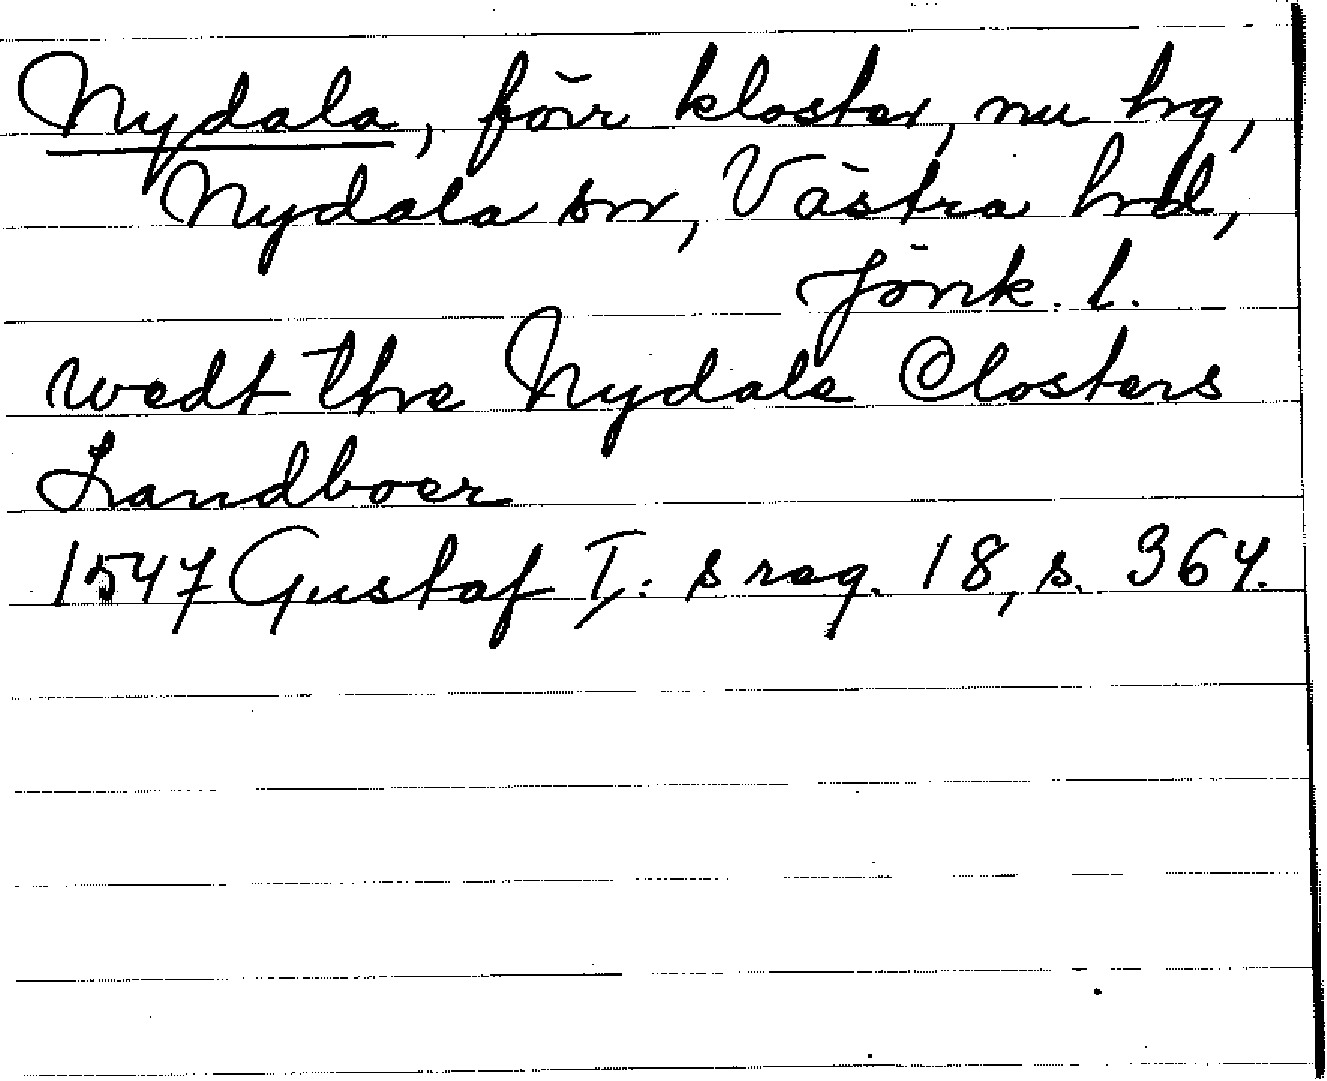 Nydala, förr kloster, nu hrg,
Nydala sn, Västra hrd,
Jönk. l.
wedt thre Nydale Closters
Landboer
1547 Gustaf I: s reg. 18, s. 364.